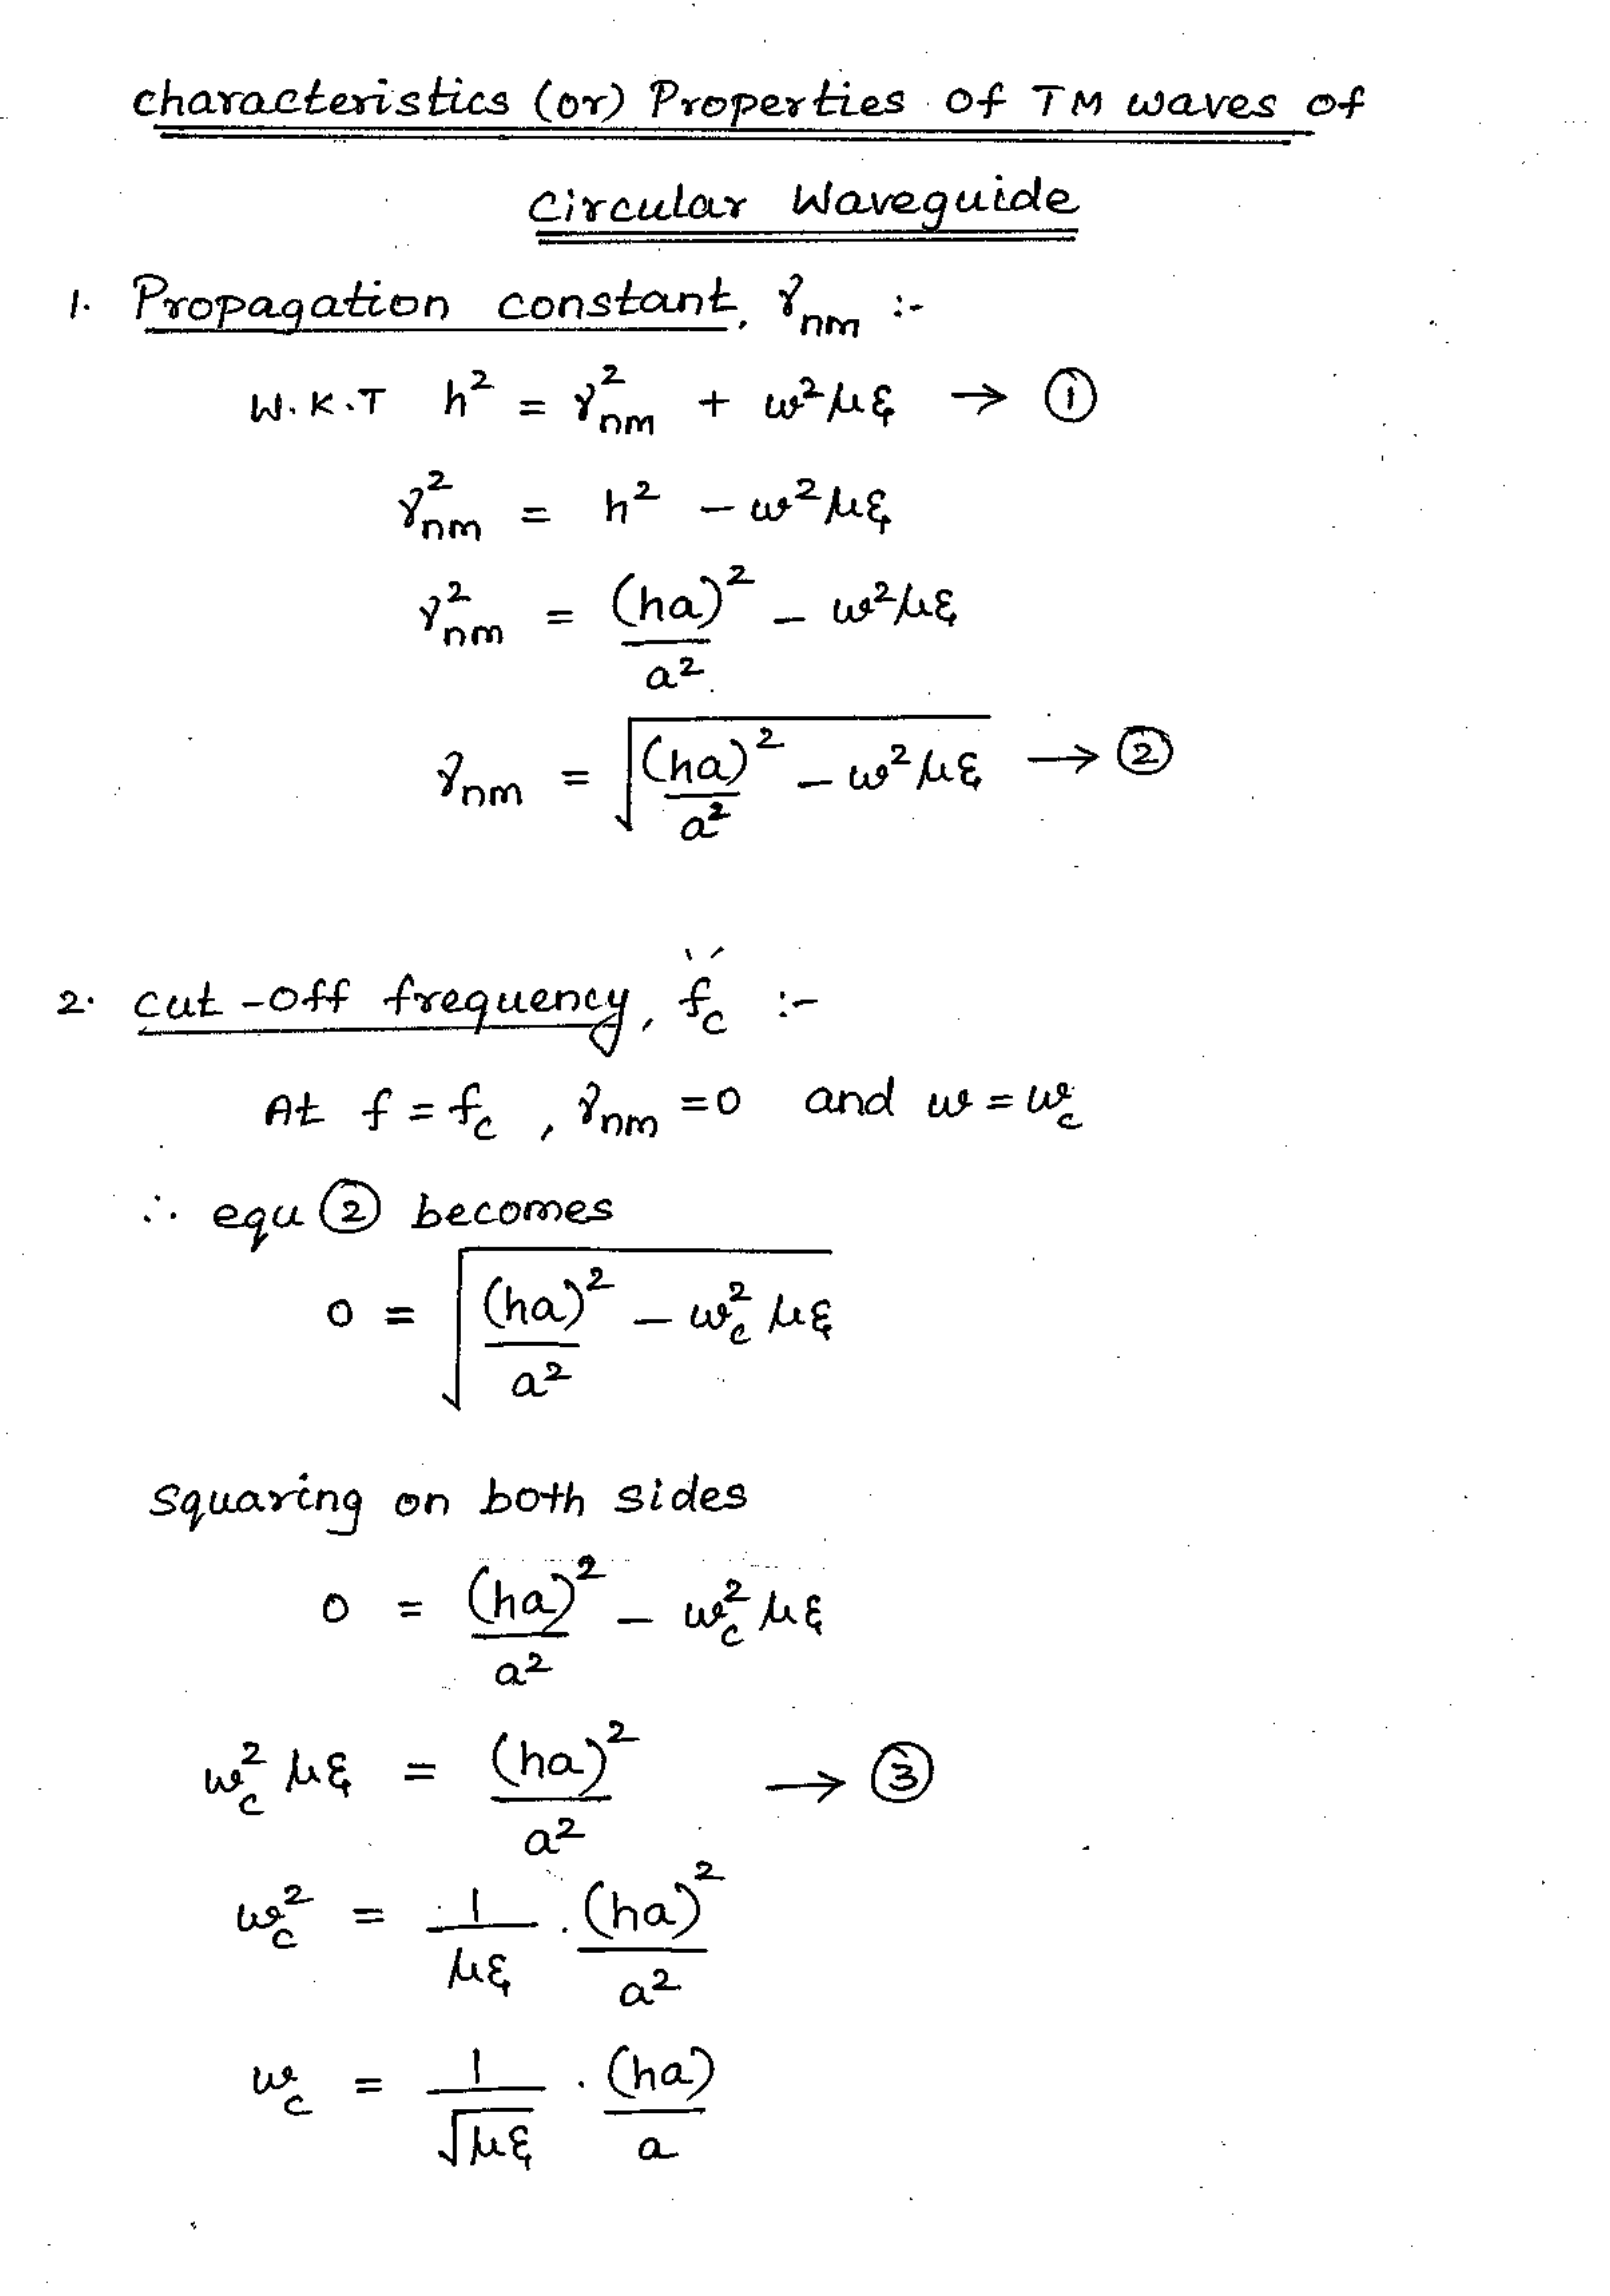 characteristics (or) Properties of TM waves of
Circular Waveguide
1. Propagation constant, γnm :-
W.K.T h² = γ²nm + ω²με → ①
γ²nm = h² - ω²με
γ²nm = (ha)²/a² - ω²με
γnm = √((ha)²/a² - ω²με) → ②
2. cut-off frequency, fc :-
At f = fc , γnm = 0 and ω = ωc
∴ equ ② becomes
0 = √((ha)²/a² - ωc² με)
squaring on both sides
0 = (ha)²/a² - ωc² με
ωc² με = (ha)²/a² → ③
ωc² = 1/με . (ha)²/a²
ωc = 1/√με . (ha)/a